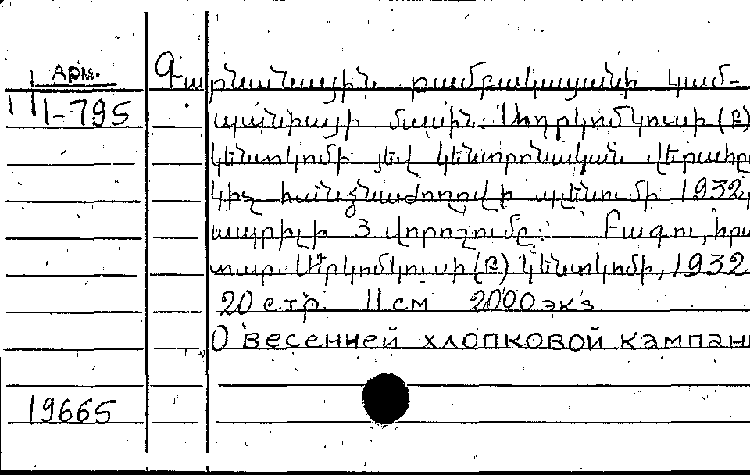 Арм.
1-795
Գարնանային բամբակացանի կամ-
պանիայի մասին. Ադրկոմկուսի (բ)
կենտկոմի յեվ կենտրոնական վերահը
կիչ հանձնաժողովի պլենումի 1932
ապրիլի 3 վորոշումը: Բագու, հրա
տար. Ադրկոմկուսի (բ) կենտկոմի, 1932
20 стр. 11 см 2000 экз
О весенней хлопковой кампан
19665